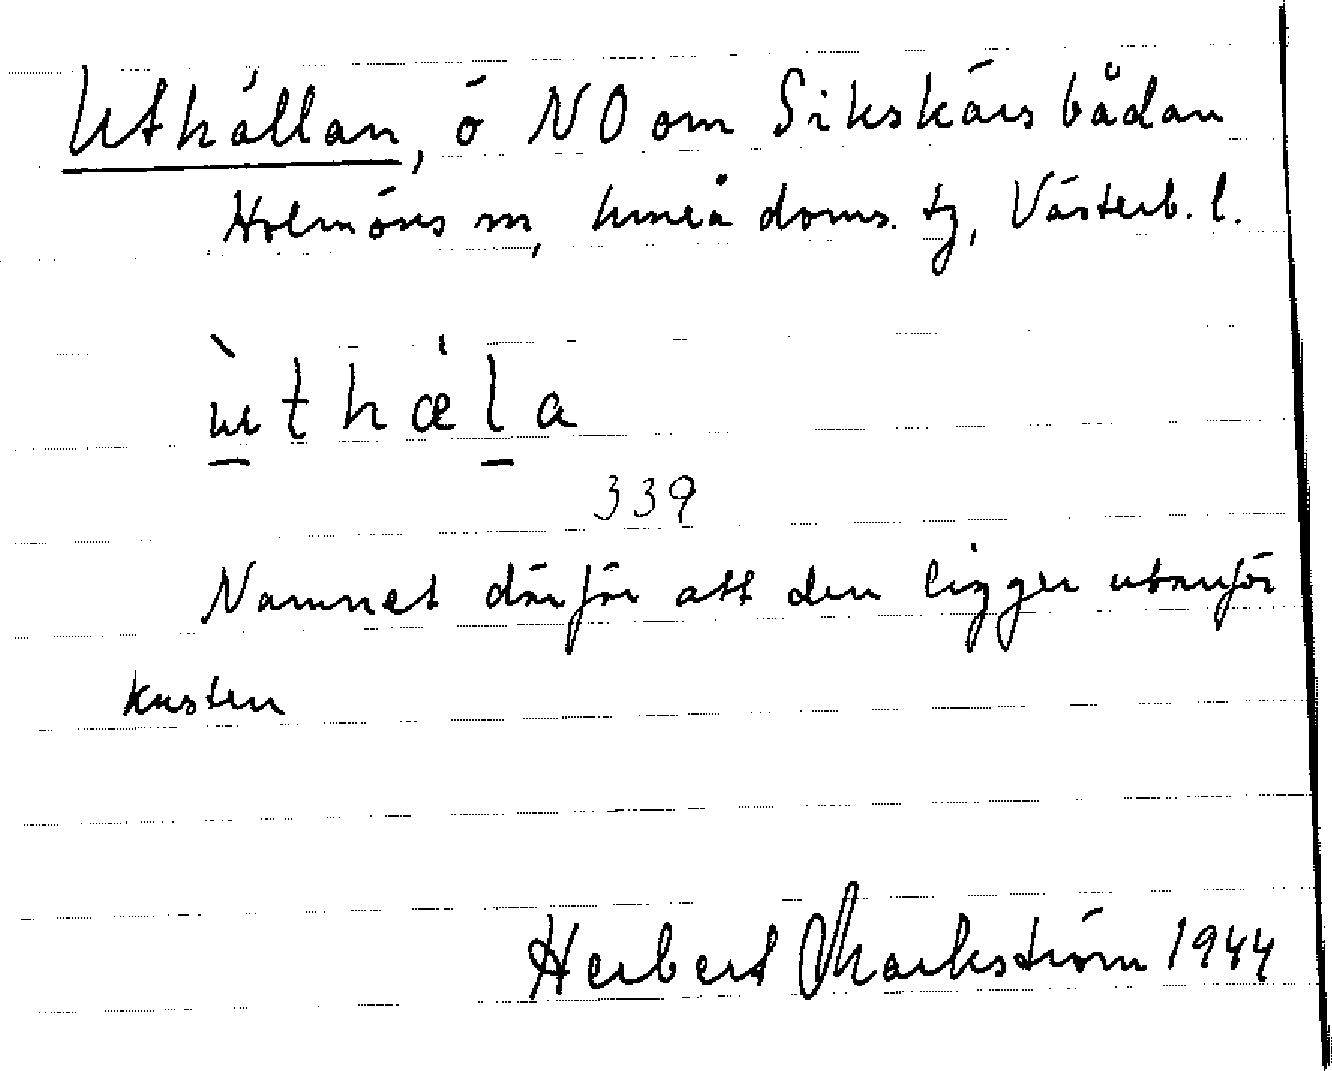 Uthällan, ö NO om Sikskärsbådan
Holmöns sn, Umeå doms. tg, Västerb. l.
ùthæ̍la
339
Namnet därför att den ligger utanför
kusten
Herbert Markström 1944